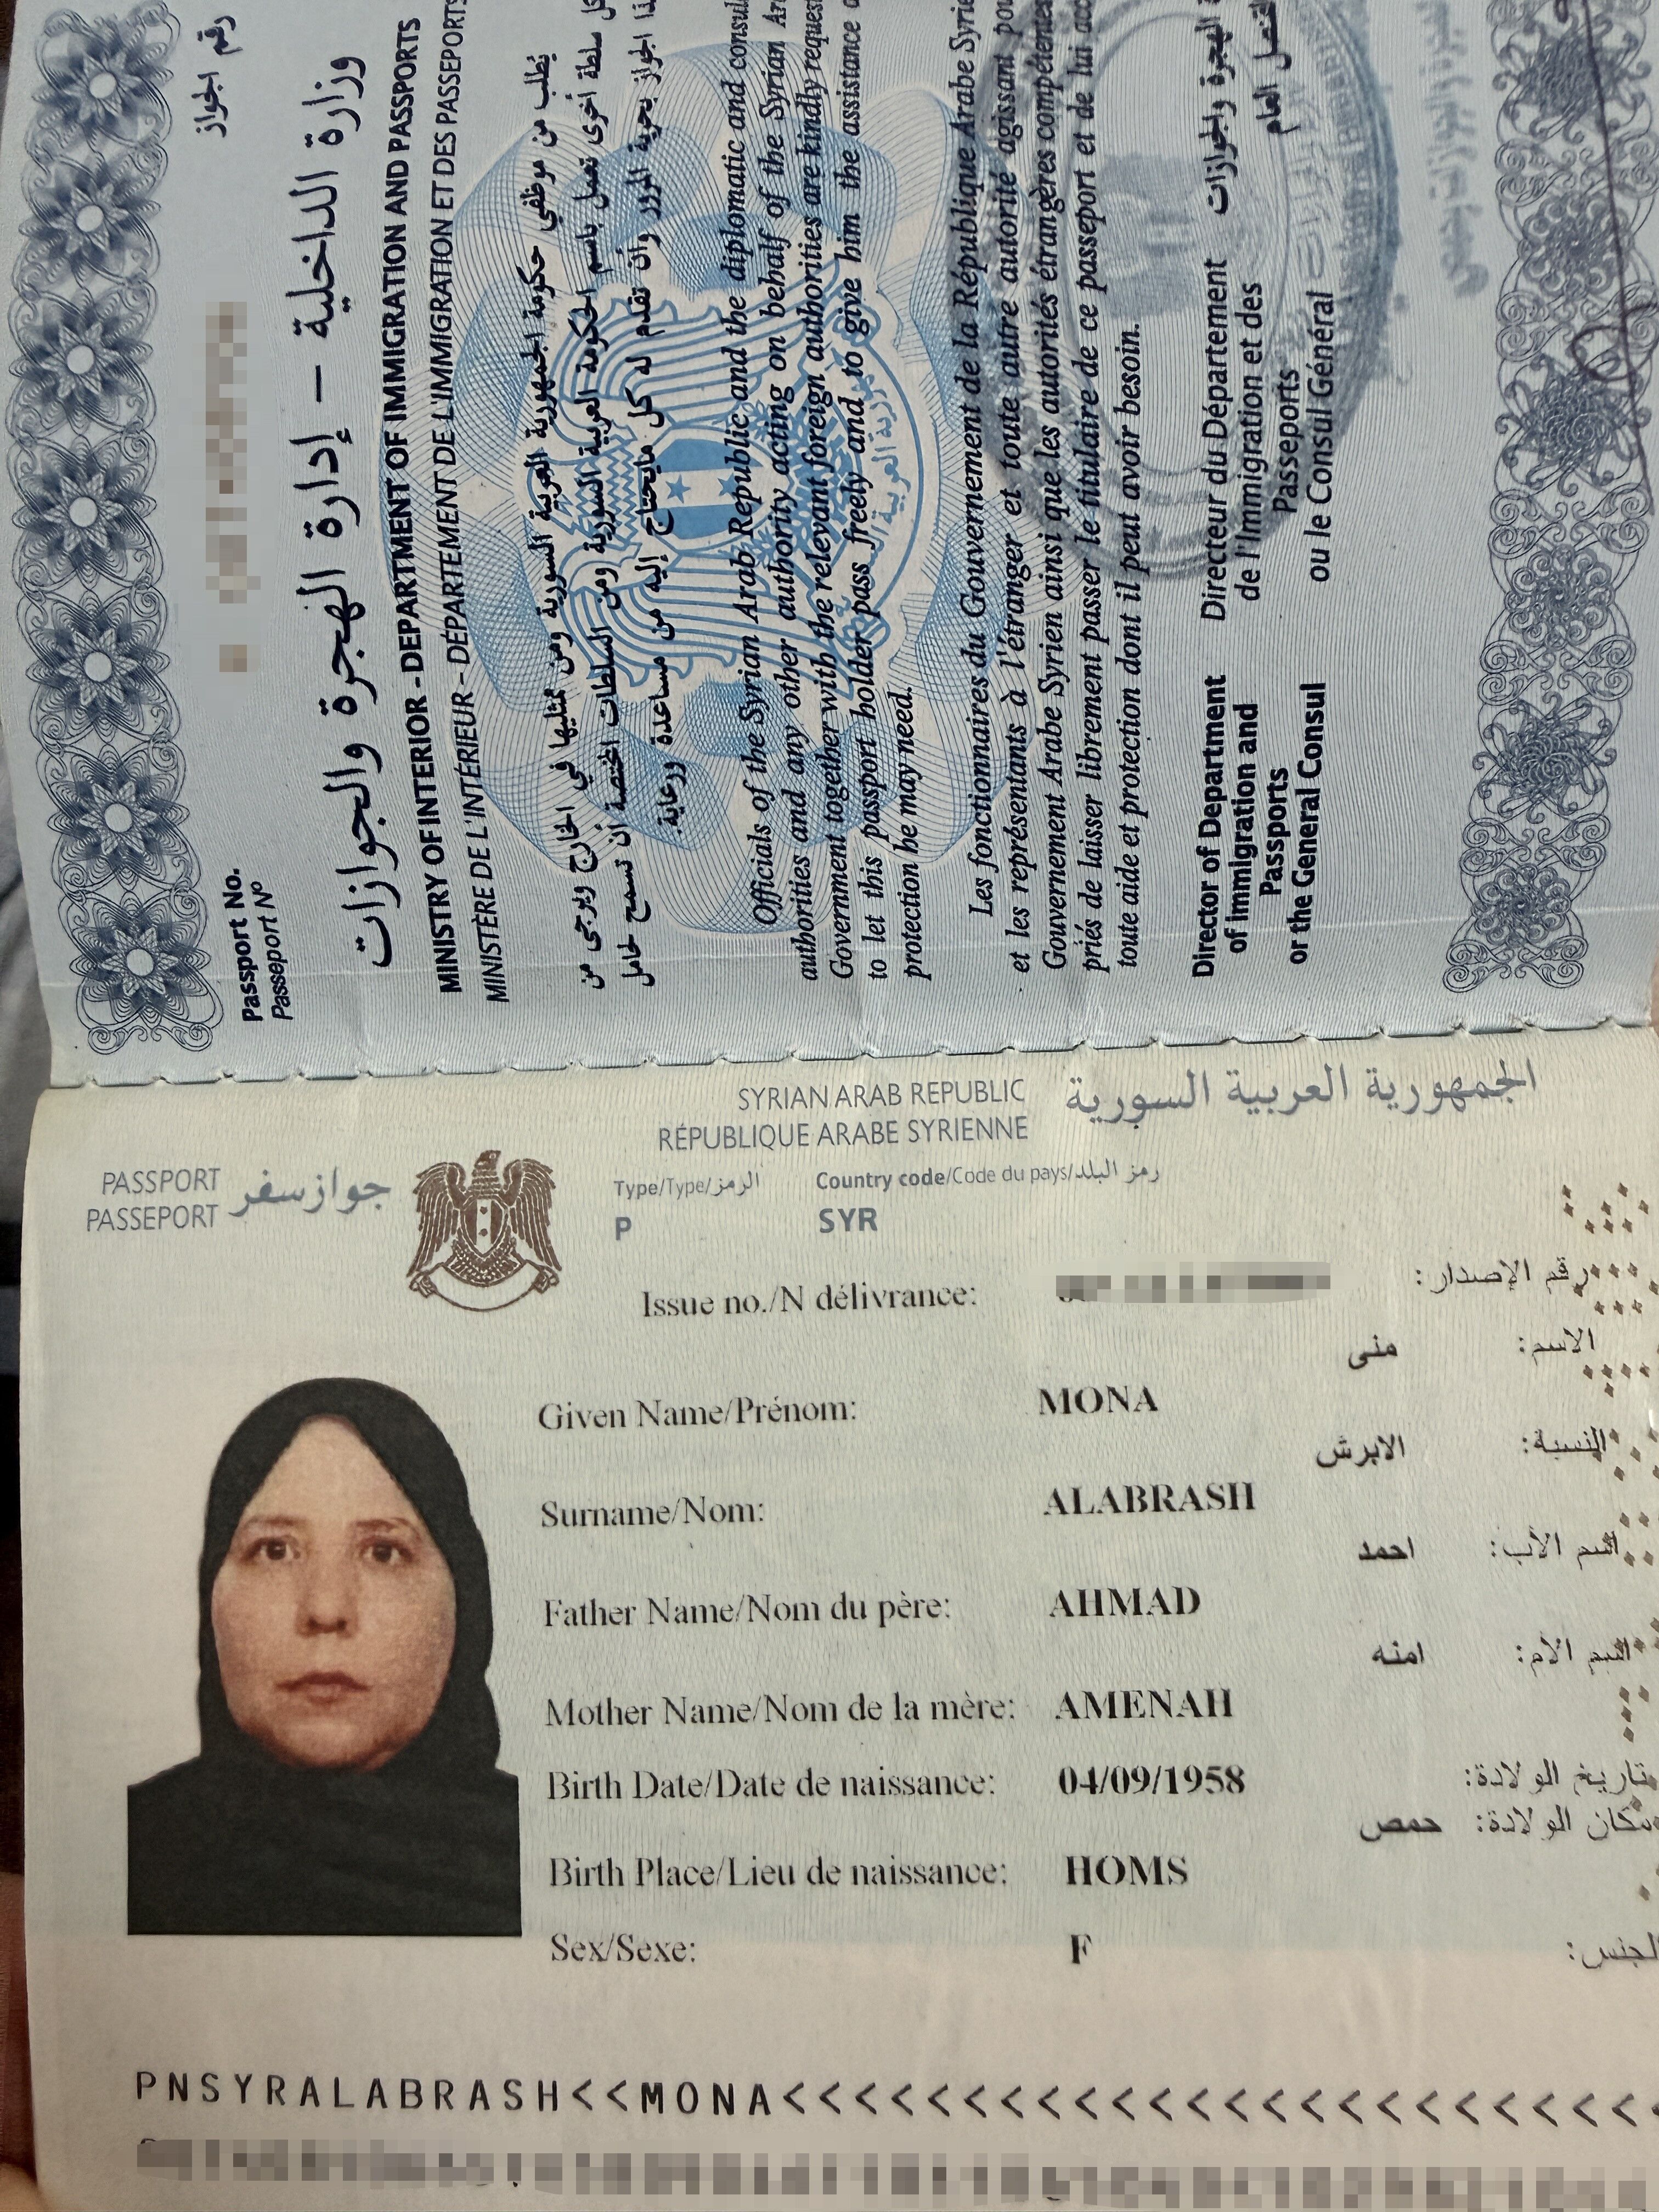 رقم الجواز
Passport No.
Passeport Nº
وزارة الداخلية – إدارة الهجرة والجوازات
MINISTRY OF INTERIOR - DEPARTMENT OF IMMIGRATION AND PASSPORTS
MINISTÈRE DE L'INTÉRIEUR – DÉPARTEMENT DE L'IMMIGRATION ET DES PASSEPORTS
يُطلب من موظفي حكومة الجمهورية العربية السورية ومن ممثليها في الخارج ويرجى من
كل سلطة أخرى تعمل باسم الحكومة العربية السورية ومن السلطات المختصة أن تسمح لحامل
هذا الجواز بحرية المرور وأن تقدم له كل مايحتاج إليه من مساعدة ورعاية.
Officials of the Syrian Arab Republic and the diplomatic and
authorities and any other authority acting on behalf of the Syrian
Government together with the relevant foreign authorities are kindly
to let this passport holder pass freely and to give him the assistance
protection he may need.
Les fonctionnaires du Gouvernement de la République Arabe
et les représentants à l'étranger et toute autre autorité agissant
Gouvernement Arabe Syrien ainsi que les autorités étrangères compétentes
priés de laisser librement passer le titulaire de ce passeport et de lui
toute aide et protection dont il peut avoir besoin.
Director of Department
of Immigration and
Passports
or the General Consul
Directeur du Département
de l'Immigration et des
Passeports
ou le Consul Général
الهجرة والجوازات
القنصل العام
الجمهورية العربية السورية
SYRIAN ARAB REPUBLIC
RÉPUBLIQUE ARABE SYRIENNE
الجمهورية العربية السورية
PASSPORT
PASSEPORT
جواز سفر
Type/Type/الرمز
P
Country code/Code du pays/رمز البلد
SYR
Issue no./N délivrance:
رقم الإصدار:
الاسم: منى
Given Name/Prénom: MONA
النسبة: الابرش
Surname/Nom: ALABRASH
اسم الأب: احمد
Father Name/Nom du père: AHMAD
اسم الام: امنه
Mother Name/Nom de la mère: AMENAH
Birth Date/Date de naissance: 04/09/1958
تاريخ الولادة:
مكان الولادة: حمص
Birth Place/Lieu de naissance: HOMS
Sex/Sexe: F
الجنس:
PNSYRALABRASH<<MONA<<<<<<<<<<<<<<<<<<<<<<